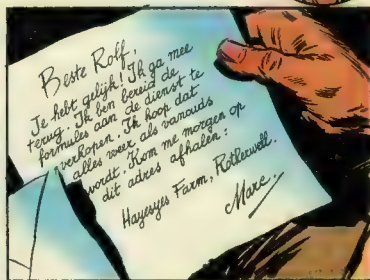 Beste Rolf,
Je hebt gelijk! Ik ga mee
terug. Ik ben bereid de
formules aan de dienst te
verkopen. Ik hoop dat
alles weer als vanouds
wordt. Kom me morgen op
dit adres afhalen:
Hayesyes Farm, Rotlerwell.
Marc.